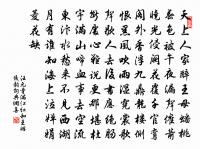 天上人家醉王母蟠桃
春色被午夜漏声催箭
晓光侵阙花覆千官鸾
阁外香浮九鼎龙楼侧
恨黑风吹雨湿霓裳歌
声歇人去后书应绝肠
断处心难说更那堪杜
宇满山啼血事去空流
东汴水愁来不见西湖
月有谁知海上泣婵娟
菱花缺
汪元量满江红和王昭
仪韵